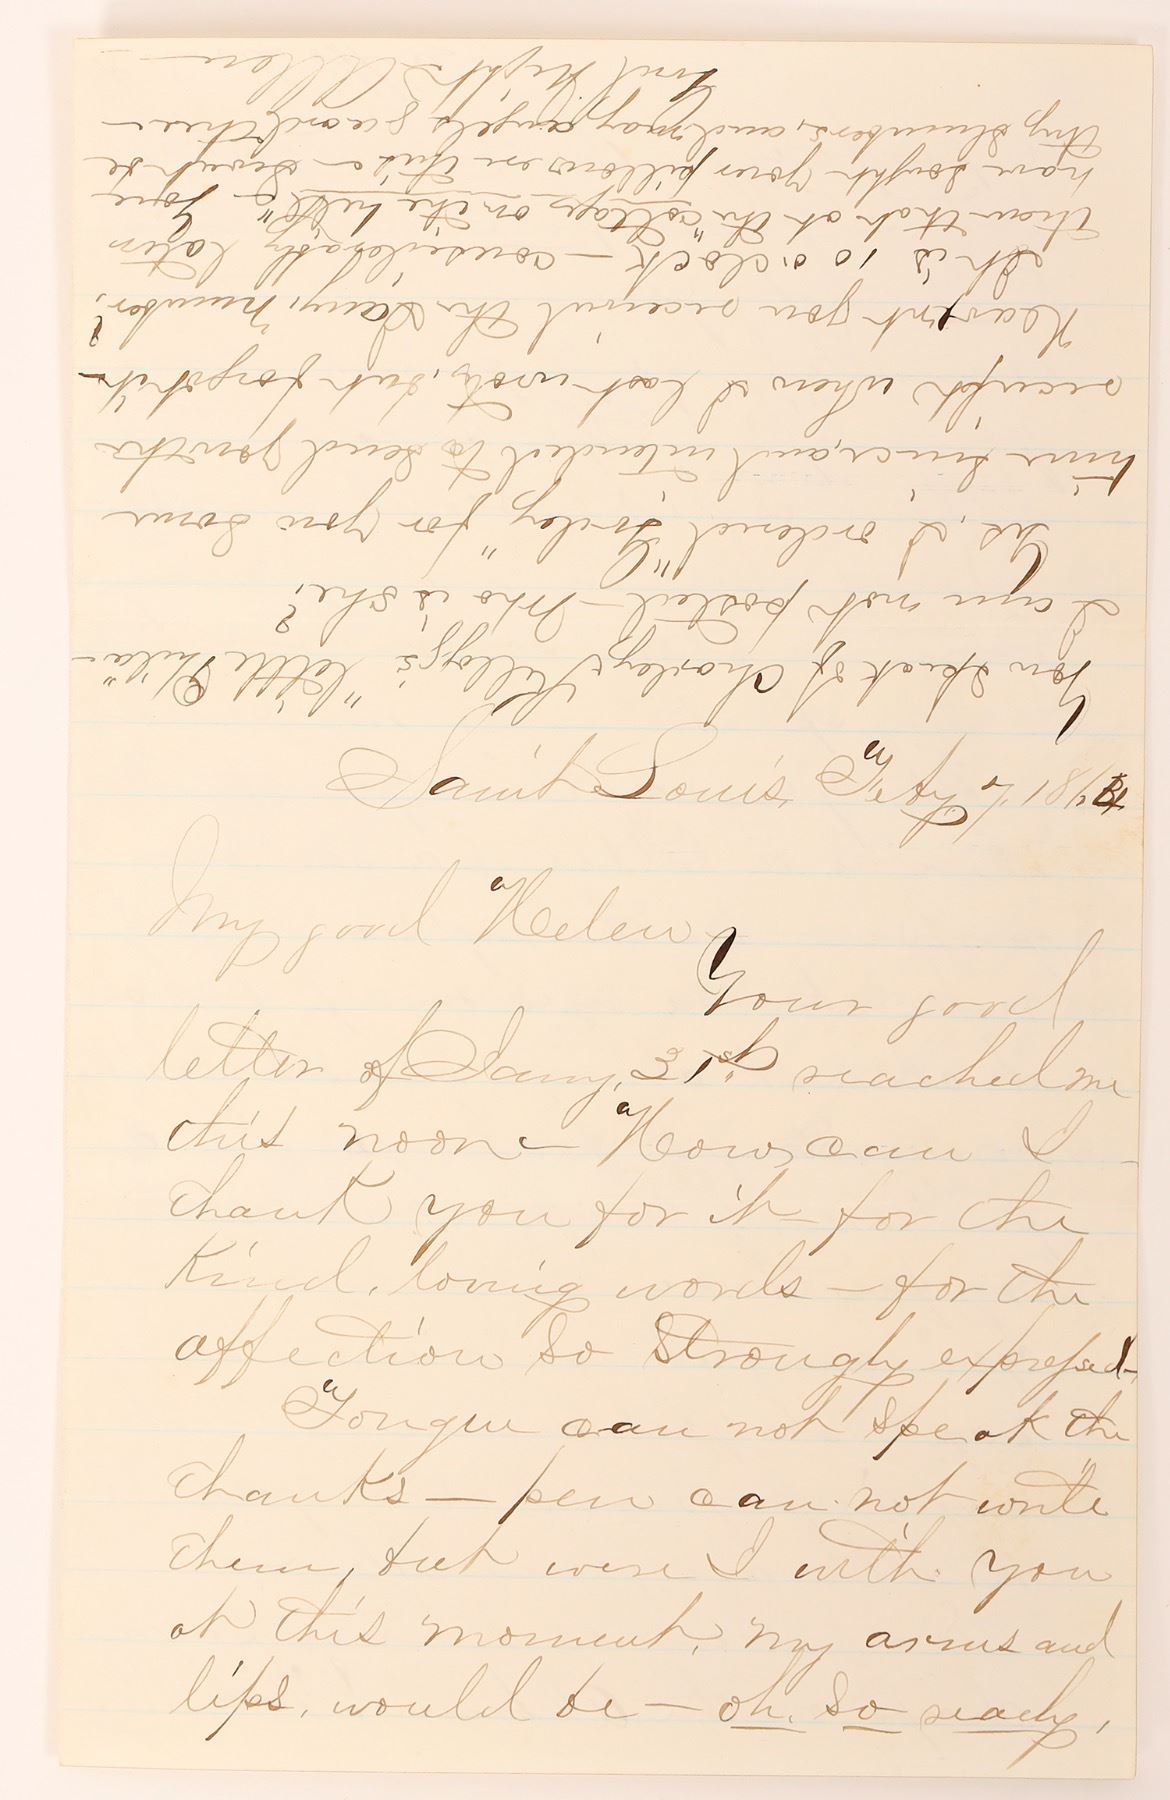 Saint Louis Feby 6 187
My good Helen
Your good
letter of Jany. 31st. reached me
this noon — How can I
thank you for it — for the
kind, loving words — for the
affection so strongly expressed —
Tongue can not speak the
thanks — pen can not write
them, but were I with you
at this moment, my arms and
lips, would be — oh, so ready,
You speak of Charley Kellogg's "little Phila" —
I am not posted — Who is she?
Yes, I ordered "Godey" for you some
time since, and intended to send you the
receipt when I last wrote, but forgot it —
Haven't you received the Jany. number?
It is 10 o'clock — considerably later
than that at the "cottage on the hill" & you
have sought your pillow ere this —
thy slumbers, and may angels guard thee —
Good Night Allen —